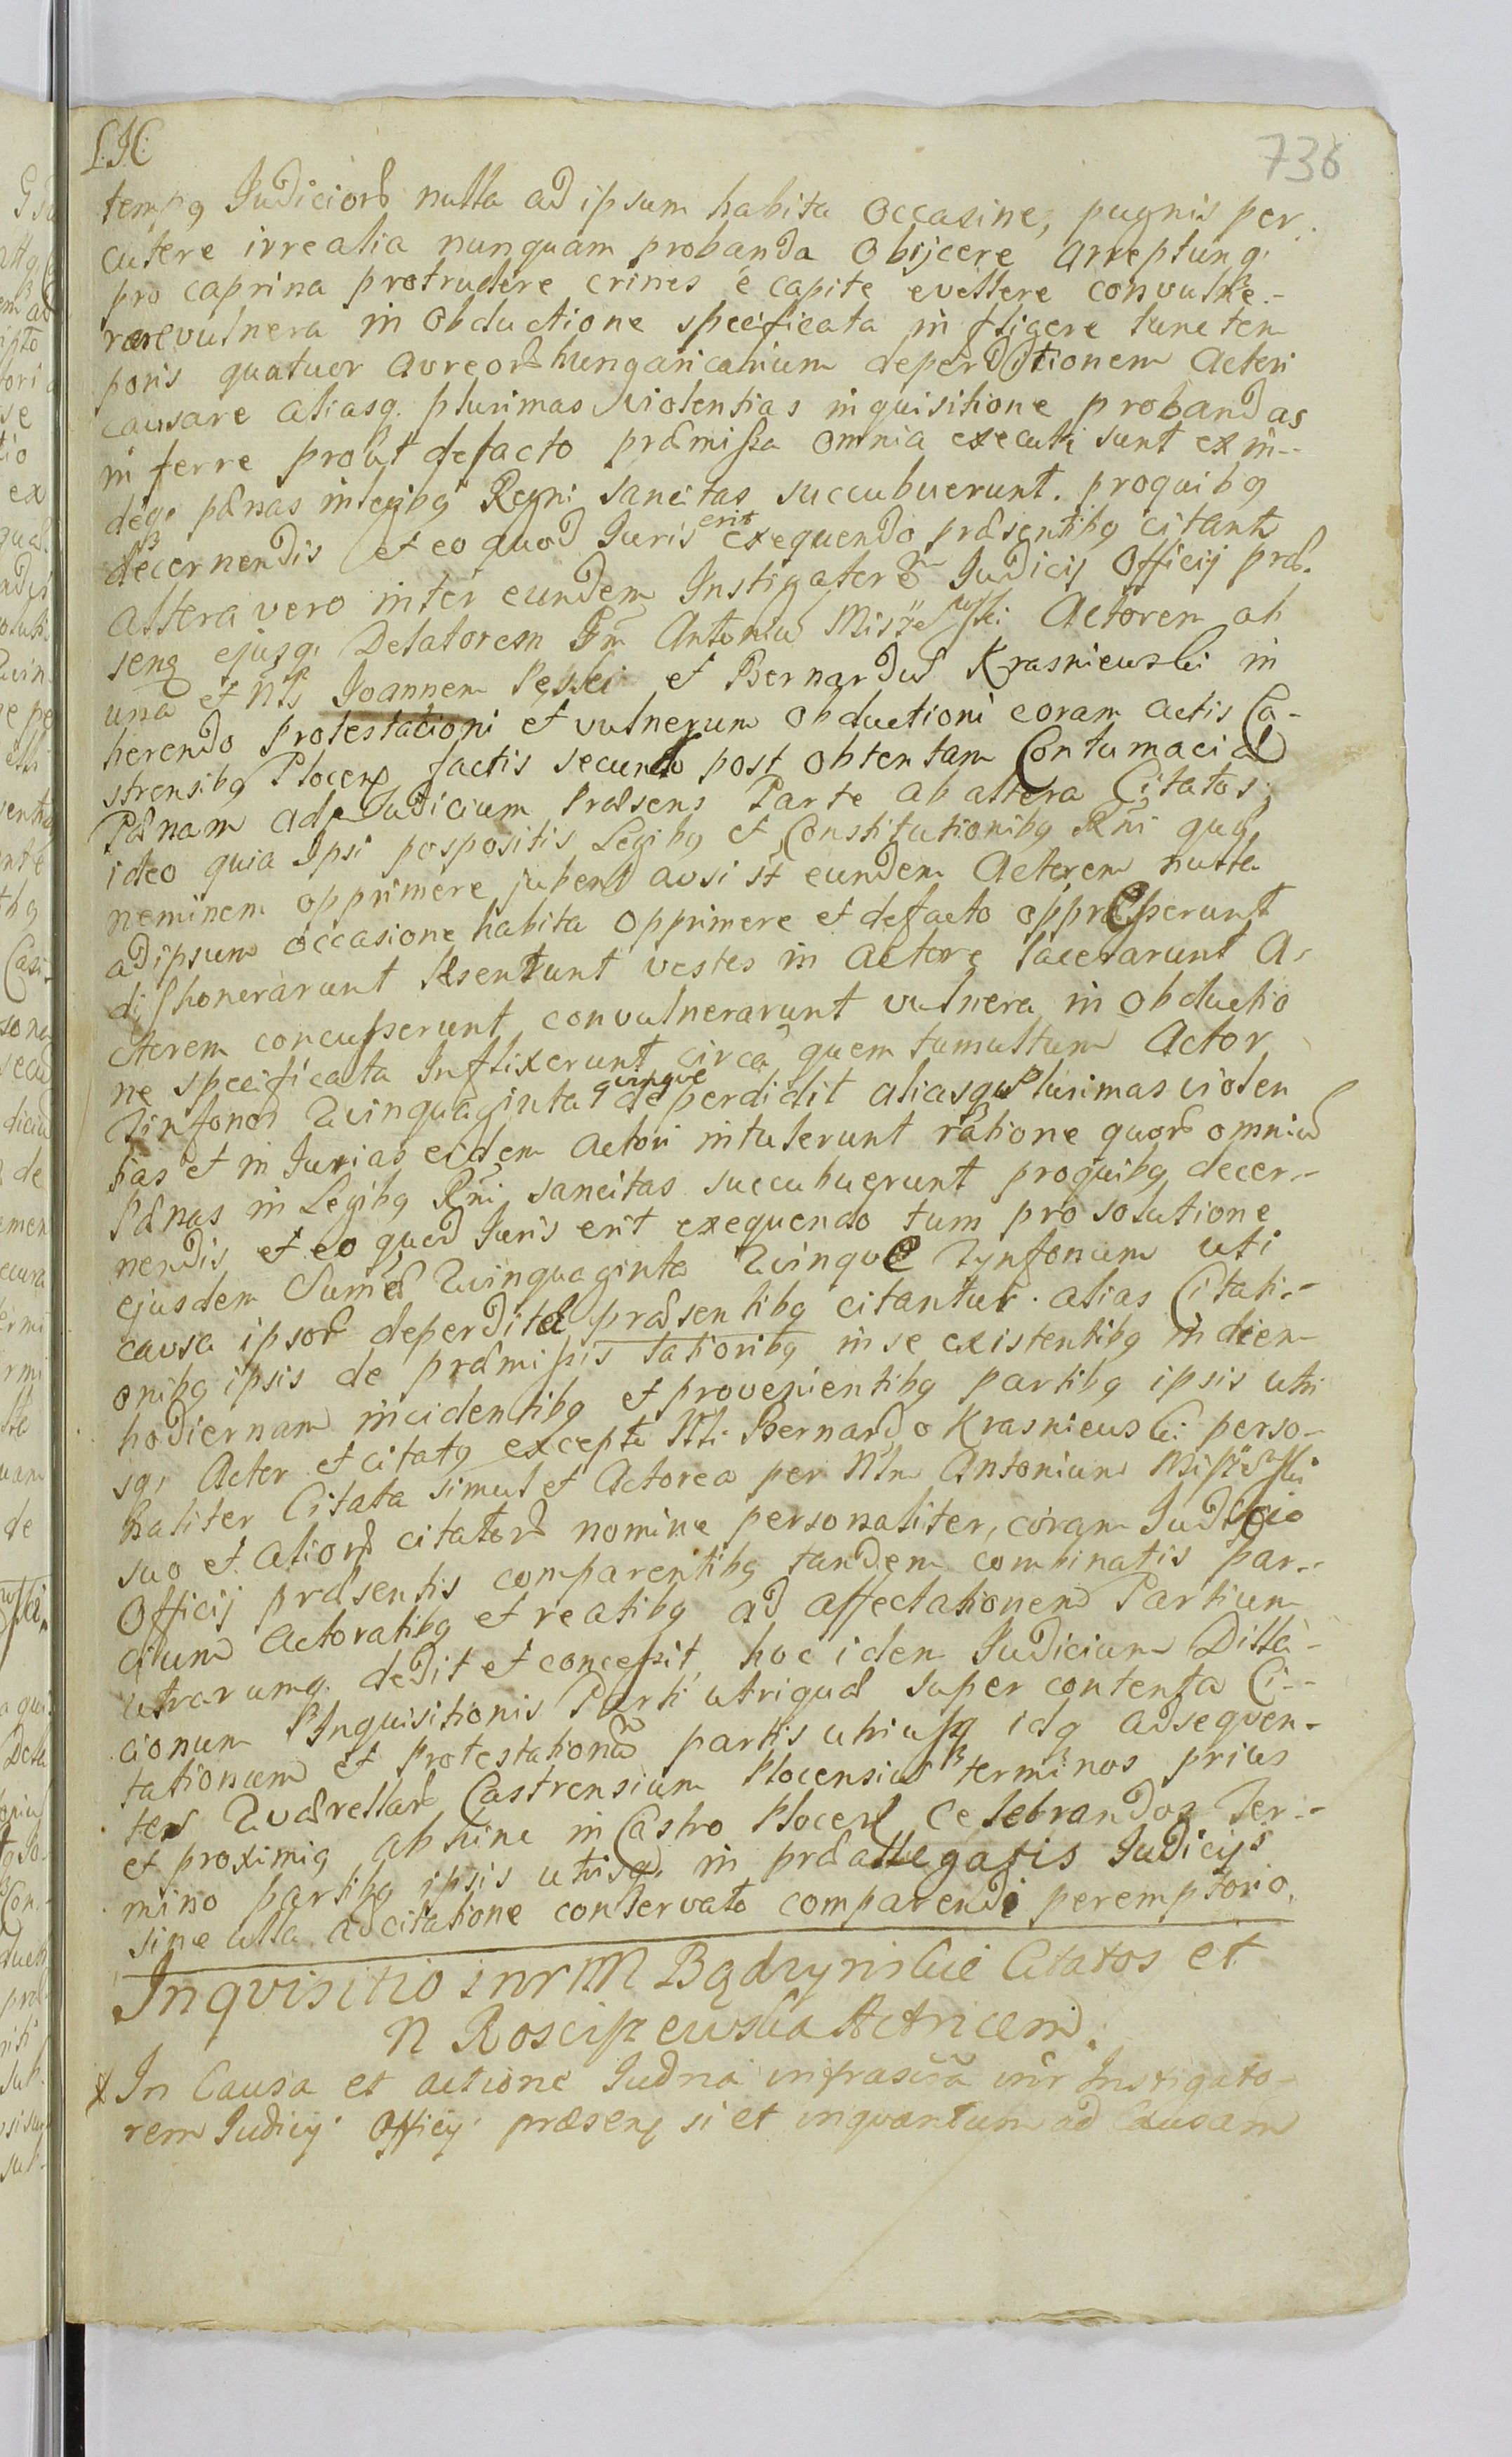 736
tempq Judiciorũ nulla ad ipsum habita occasine, pugnis per
cutere irrealia nunquam probanda obijcere arreptumq.
pro caprina protrudere crines è capite evellere convulne-
rare vulnera in obductione specificata infligere tunc tem
poris quatuor aureorũ hungaricalium deperditionem Actori
causare aliasq. plurimas violentias inquisitione probandas
inferre prout defacto præmissa omnia executi sunt exin--
deq. pænas in legibq Regni sancitas succubuerunt. proquibq
decernendis et eo quod Juris erit exequendo præsentibq citantr
altera vero inter eundem Instigatorẽ Judicij Officij præ.
senq ejusq. Delatorem Antoniũ Actorem ab
una et Nls Joannem et Bernardũ Krasniewski in
herendo protestationi et vulnerum obductioni coram actis Ca-
strensibq Plocenq factis secundo post obtentam Contumaciæ
Pænam ad Judicium Præsens Parte ab altera Citatos;
ideo quia Ipsi pospositis Legibq et Constitutionibq Rñi quæ
neminem opprimere jubent ausi st eundem Actorem nulla
adipsum occasione habita opprimere et defacto oppræsserunt
disshonerarunt vestes in Actore lacerarunt A-
ctorem concusserunt, convulnerarunt vulnera in obductio
ne specificata Inflixerunt circa quem tumultum Actor
Tinfonos Quinquaginta quinque deperdidit aliasqu Plurimas violen
tias et in Jurias eidem Actori intulerunt ratione quorũ omniũ
Pænas in Legibq Rñi sancitas succubuerunt proquibq decer--
nendis, et eo quod Juris erit exequendo tum pro solutione
ejusdem Sumæ Quinquaginta Quinque Tynfonum uti
causa ipsorũ deperditæ præsentibq citantur. alias Citati--
onibq ipsis de præmissis rationibq in se existentibq in diem
hodiernam incidentibq et provenientibq partibq ipsis utri
sq. Actor et citatq excepto Nli Bernardo Krasniewski perso-
naliter Citata simul et Actorea per Nlm Antonium
suo et aliorũ citatorũ nomine personaliter, coram Judicio
Officij præsentis comparentibq tandem combinatis par--
cium Actoratibq et reatibq ad affectationem Partium
utrarumq. dedit et concessit, hoc idem Judicium Dilla-
cionum Inquisitionis Parti utriquæ super contenta Ci--
tationum et Protestationũ partis utriusq idq adsequen-
tes Quærellarũ Castrensium Plocensiũ terminos prius
et proximiq abhinc in Castro Plocen Celebrandos Ter--
mino partibq ipsis utrisq. in præallegatis Judicijs
sine ulla adcitatione conservato comparendi peremptorio.
Inqvisitio inr M Bądzynskie Citatos et
N Rosciszewska Actricem.
In Causa et actione Judña infrascrã inr Instigato-
rem Judicij Officij præsenq si et inquantum ad Causam